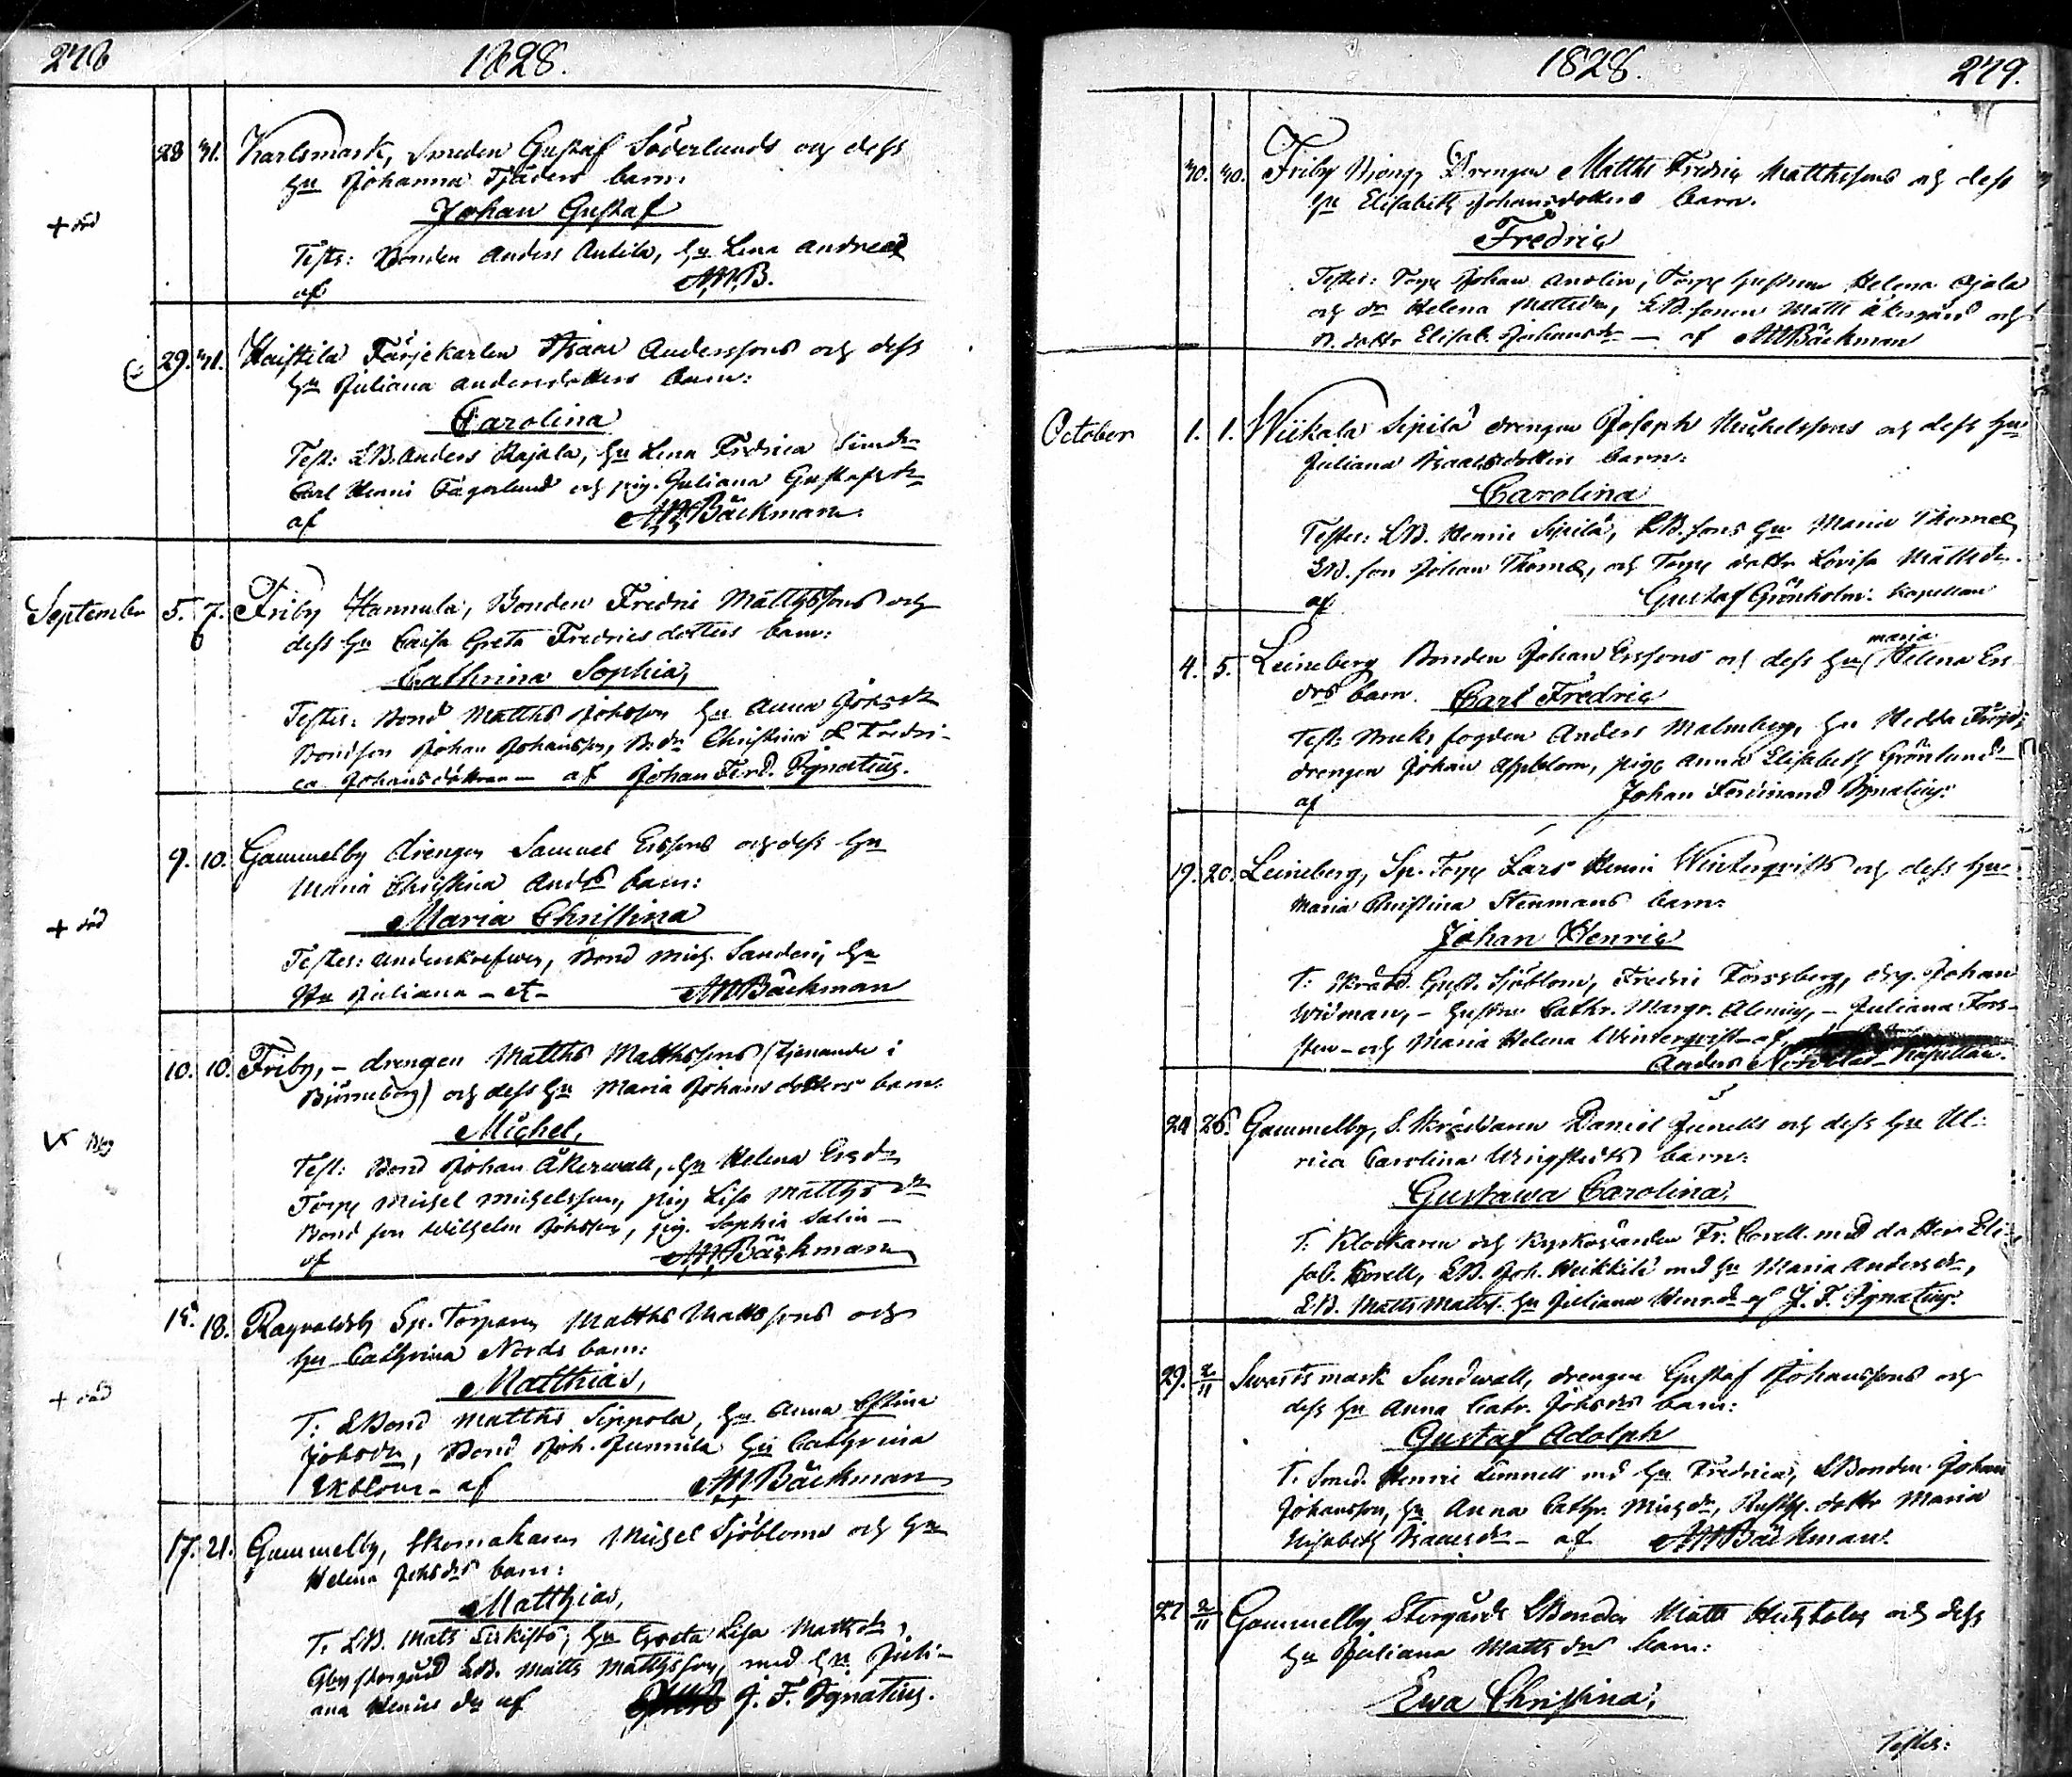 278 1828.
28 31. Karlsmark, Smeden Gustaf Söderlunds och dess
hu Johanna Tjäders barn:
Johan Gustaf
+ död
Testes: Bonden Anders Anttila, hu Lena Andreæ
af A.W.B.
29. 31. Haistila Färjekarlen Isaac Anderssons och dess
hu Juliana Andersdotters barn:
Carolina
Test: LB. Anders Rajala, hu Lena Fredrica Simdr
Carl Henric Fagerlund och pig. Juliana Gustafsdr
af A.W. Bäckman.
September 5. 7. Friby Hannula, Bonden Fredric Matthssons och
dess hu Caisa Greta Fredricsdotters barn:
Cathrina Sophia,
Testes: Bond Matths Johsson hu Anna Johsdr
Bondson Johan Johansson, B.dr Christina & Fredri-
ca Johansdöttrar — af Johan Ferd. Ignatius.
9. 10. Gammelby drengen Samuel Erssons och dess hu
Maria Christina Andrs barn:
Maria Christina
+ död
Testes: Bond Mich. Sanderi, hu
Juliana — et — A.W. Bäckman
10. 10. Friby, — drengen Matths Matthssons (tjenande i
Björneborg) och dess hu Maria Johansdotters barn:
Michel,
Test: Bond Johan Åkerwall, hu Helena Ersdr
Torpr Michel Michelsson, pig Lisa Matthsdr
Bondson Wilhelm Johsson, pig. Sophia Salin —
af A.W. Bäckman
15. 18. Ragvaldsby Sp. Torparen Matths Mattssons och
hu Cathrina Nords barn:
Matthias,
+ död
T: LBond Matths Sippola, hu Anna Cstina
Johsdr, Bond Joh. Junnila hu Cathrina
Ekblom — af A.W. Bäckman
17. 21. Gammelby, Skomakaren Michel Sjöbloms och hu
Helena Johsdrs barn:
Matthias,
T. LB. Mats hu Greta Lisa Mattsdr,
Gby Storgård LB. Matts Matthsson, med hu Juli-
ana Henrics dr af J. F. Ignatius.
1828. 279.
30. 30. Friby Drengen Matths Fredric Matthssons och dess
hu Elisabeth Johansdotters barn.
Fredric
Testes: Torpr Johan Anolin, Torpr hustrun Helena Ojala
och dr Helena Mattsdr, LB. sonen Matts Åkergård och
B. dottr Elisab. Johansdr — af A.W. Bäckman
October 1. 1. Wiikala Sipilä drengen Joseph Michelssons och dess hu
Juliana Isaacsdotters barn:
Carolina
Testes: LB. Henric Sipilä, LB. sons hu Maria Thomæ,
LB. son Johan Thomæ, och Torpr dottr Lovisa Mattsdr.
af Gustaf Grönholm. Kapellan
4. 5. Leineberg Bonden Johan Erssons och dess hu maria Helena Ers
drs barn. Carl Fredric
Test: Bruks fogden Anders Malmberg, hu Hedda
drengen Johan Appblom, piga Anna Elisabeth Grönlund
af Johan Ferdinand Ignatius.
19. 20. Leineberg, Sp. Torpr Lars Henric Winterqvists och dess hu
Maria Christina Stenmans barn:
Johan Henric
T: Skrädd. Gust. Sjöblom, Fredric Forssberg, drg. Johan
Widman, — hustru Cathr. Margr. Alenius, — Juliana Fors-
sten — och Maria Helena Winterqvist — af
Anders Kapellan.
24 26. Gammelby, S. Skräddaren Daniel Junells och dess hu Ul-
rica Carolina barn:
Gustawa Carolina,
T: Klockaren och Kyrkovärden Fr. Corell. med dotter Eli-
sab. Corell, LB. Joh. Heikkilä med hu Maria Andersdr,
LB. Matts Matts. hu Juliana Henr.dr af J. F. Ignatius.
29. 2/11 Swartsmark Sundwall, drengen Gustaf Johanssons och
dess hu Anna Catr. Johsdrs barn:
Gustaf Adolph
T. Smed. Henric Limnell med hu Fredrica, LBonden Johan
Johansson, hu Anna Cathr. Michsdr, Rusth. dottr Maria
Elisabeth Isaacsdr — af A.W. Bäckman.
27 2/11 Gammelby Storgårds LBonden Matts och dess
hu Juliana Mattsdrs barn:
Ewa Christina,
Testes: